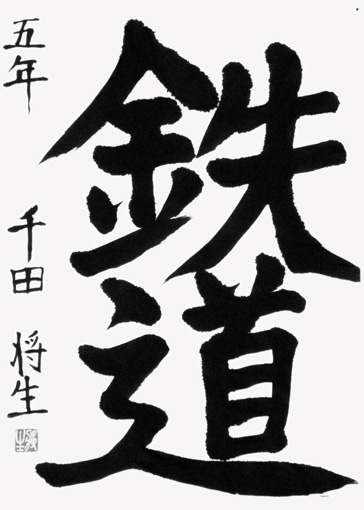 鉄道
五年 千田 将生